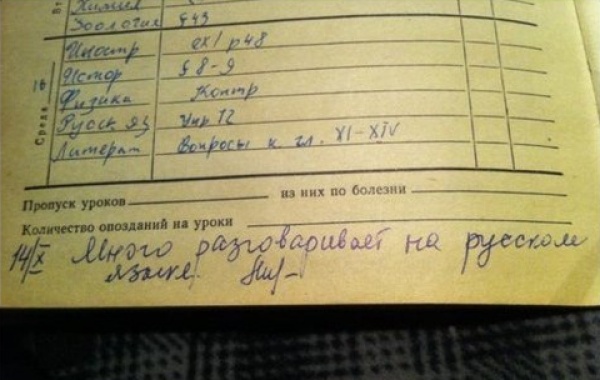 Химия
Зоология § 43
Иностр ex 1 p 48
Истор § 8-9
Физика Контр
Русск яз Упр 72
Литерат Вопросы к гл. XI-XIV
Среда 16
Пропуск уроков из них по болезни
Количество опозданий на уроки
14/X Много разговаривает на русском
языке.